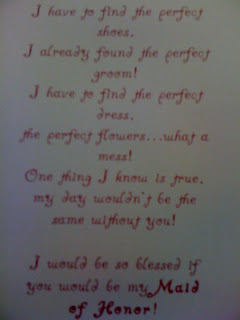 I have to find the perfect
shoes.
I already found the perfect
groom!
I have to find the perfect
dress.
the perfect flowers...what a
mess!
One thing I know is true.
my day wouldn't be the
same without you!
I would be so blessed if
you would be my Maid
of Honor!